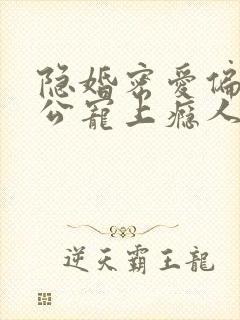 隐婚密爱偏
公宠上瘾人
逆天霸王龍